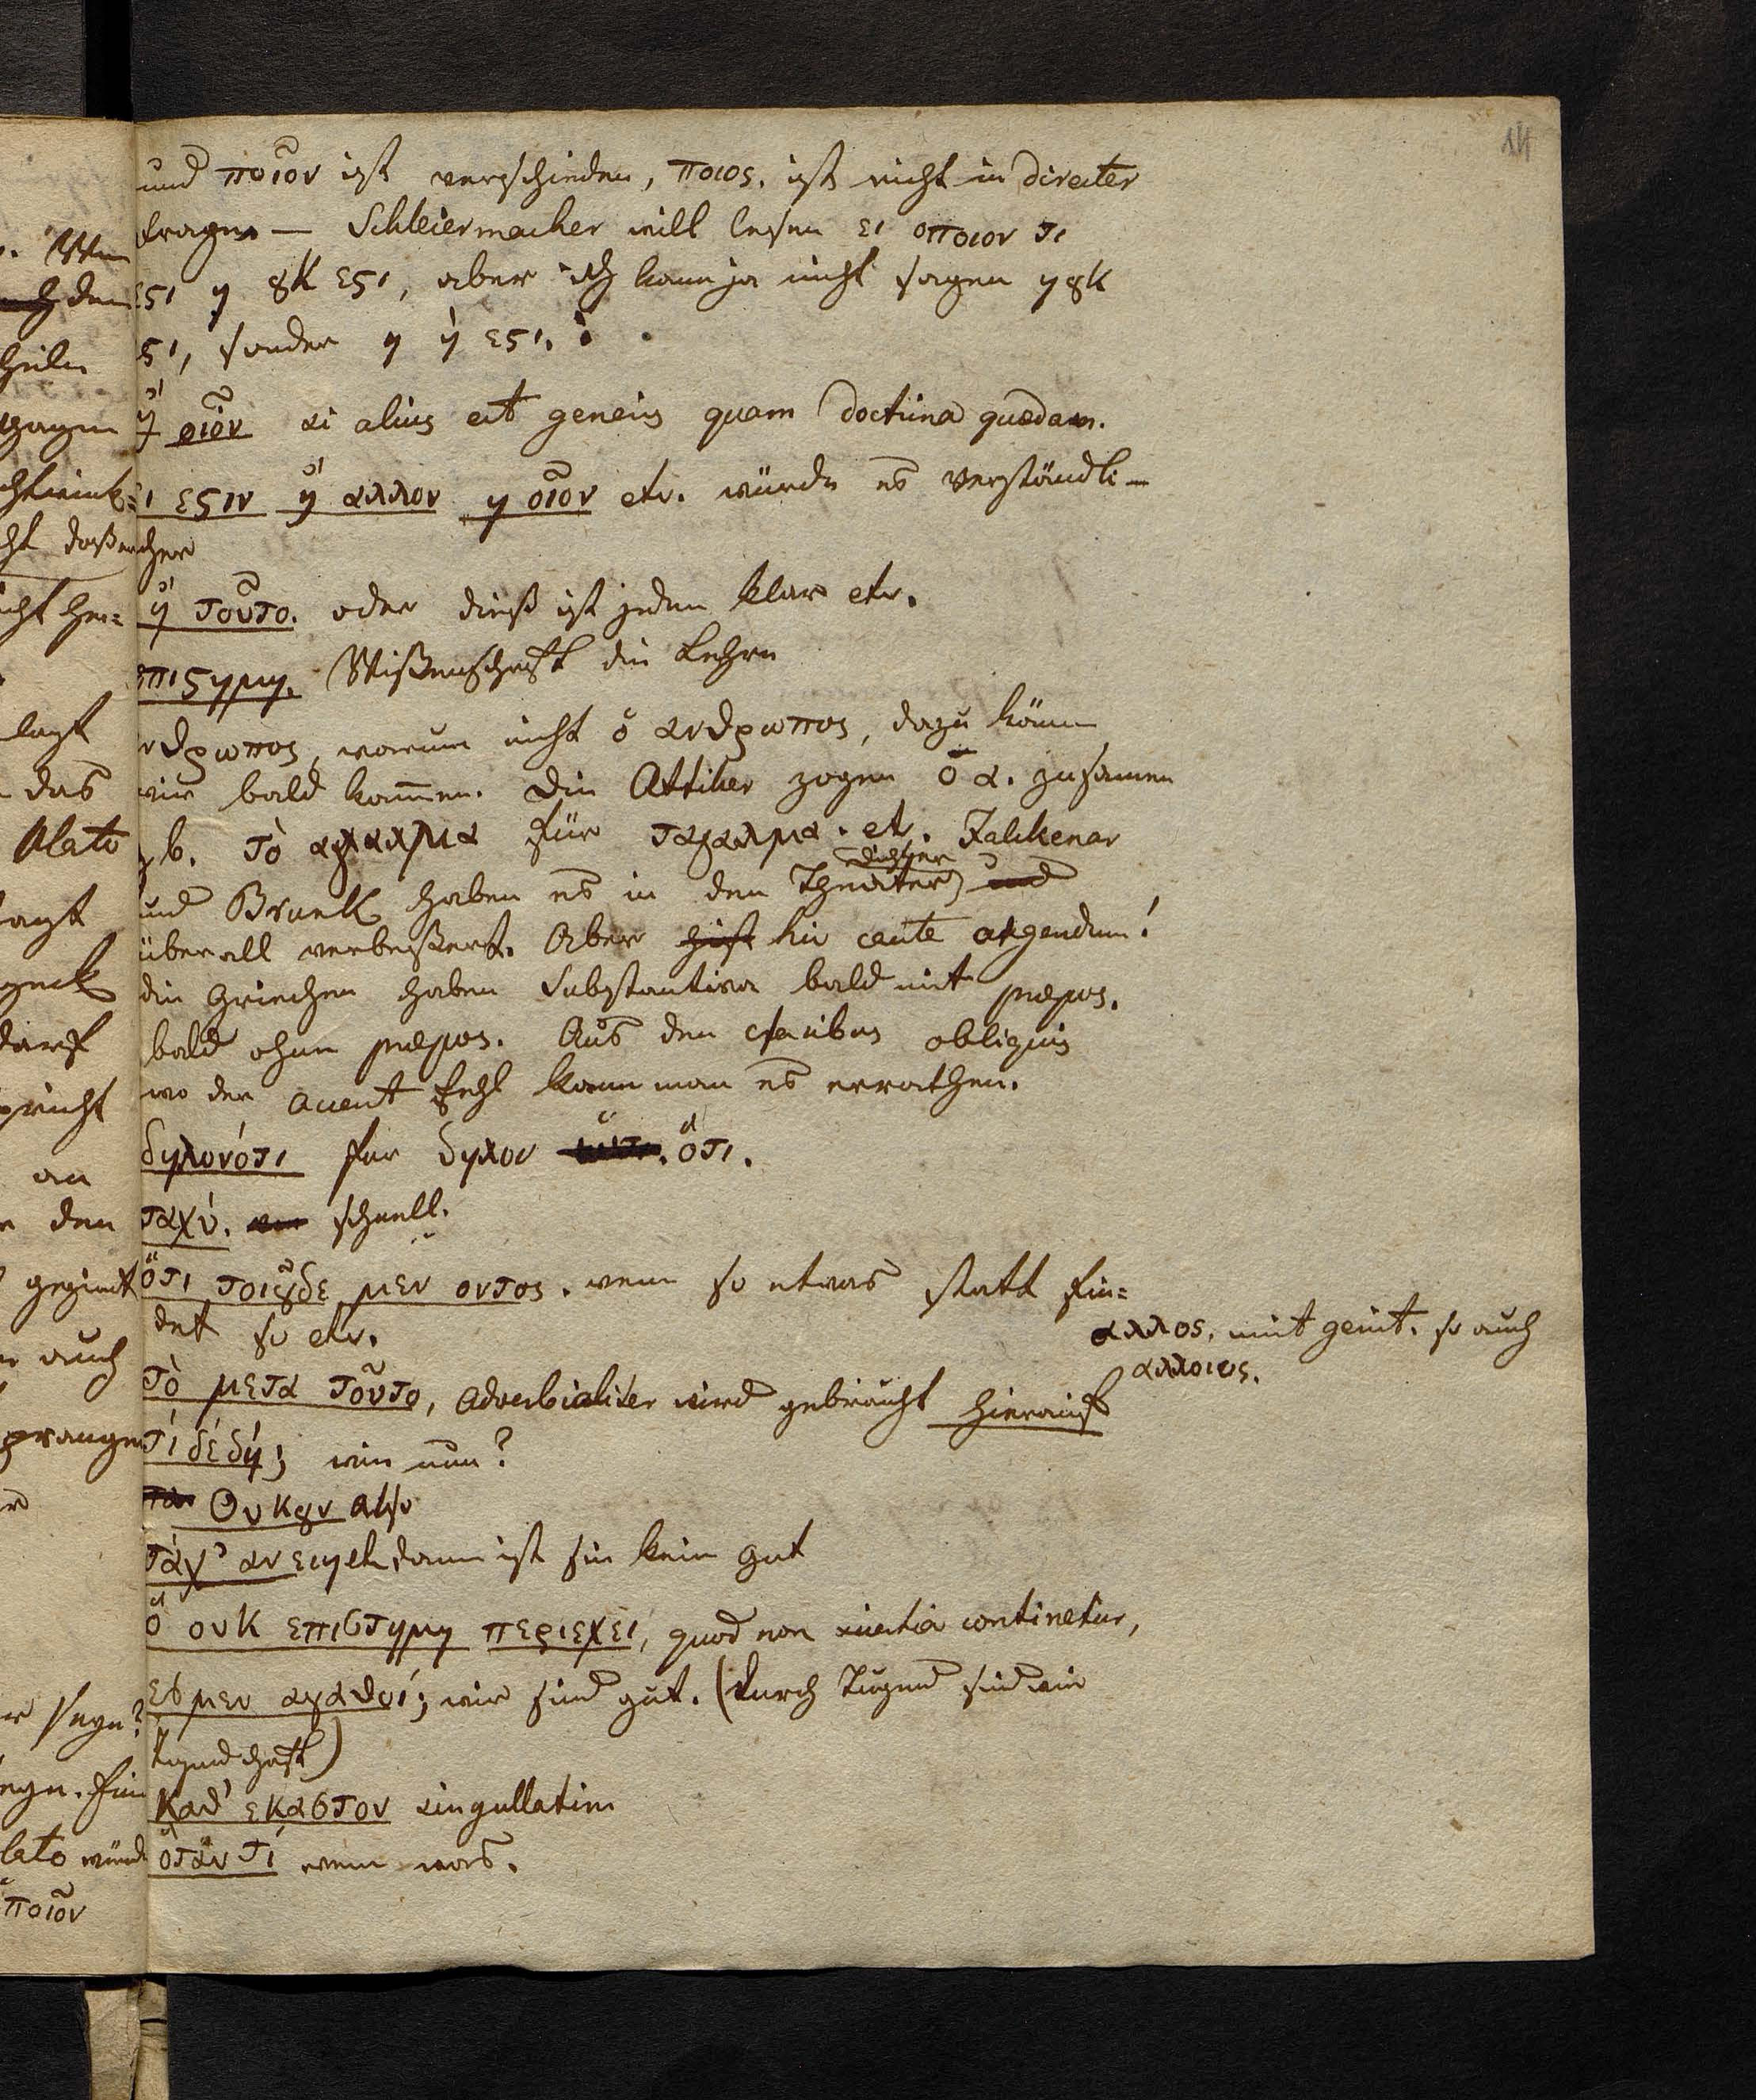 14
und ποῖον ist verschieden, ποιος. ist nicht in directer
Frage — Schleiermacher will lesen ει οποιον τι
εςι η ȣκ εςι, aber ich kann ja nicht sagen η ȣκ
ςι, sonder η ἡ εςι.
ἤ οἷον si alius est generis quam doctrina quædam.
ι εςιν ἢ αλλον η οἷον etc. würde es verständli-
cher
ἢ τοῦτο. oder dieß ist jedem klar etc.
επιςημη. Wißenschaft die Lehre
νθρωπος, warum nicht ὁ ανθρωπος, dazu könne
wir bald kom̄en. Die Attiker zogen ὁ α. zusamen
z. b. τὸ αγαλμα für ταγαλμα. etc.
und Brunk haben es in den Theater dichter und
überall verbeßert. Aber hic caute agendum!
die Griechen haben Substantiva bald mit præpos.
bald ohne præpos. Aus den casibus obliquis
wo der accent fehl kann man es errathen.
δηλονότι für δηλον ὅτι.
ταχύ. schnell.
ὅτι τοιȣδε μεν οντος. wenn so etwas statt fin=
det so etc.
αλλος. mit genit. so auch
αλλοιος.
τὸ μετα τοῦτο, adverbialiter wird gebraucht hierauf
τί δέ δή; wie nun?
Ουκȣν also
τάχ' αν ειη dann ist sie kein gut
ὃ ουκ επιστημη περιεχει, quod non scientia continetur,
εσμεν αγαθοί; wir sind gut. (durch Tugend sind wir
tugendhaft)
καθ' εκαστον singullatim
ὅταν τί wenn was.
das
Plato
an
den
auch
ποῖον